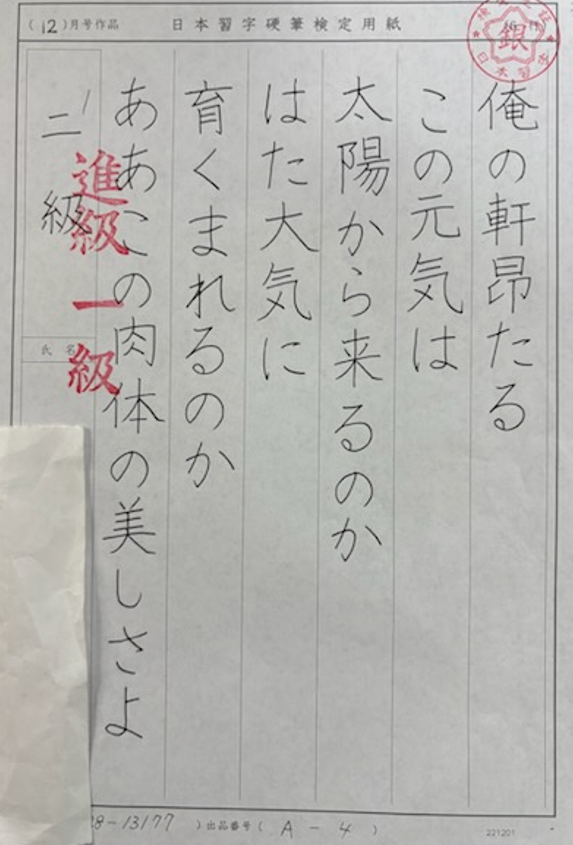 (12)月号作品
日本習字硬筆検定用紙
銀
日本習字
俺の軒昂たる
この元気は
太陽から来るのか
はた大気に
育くまれるのか
ああこの肉体の美しさよ
二級
進級一級
氏名
28-13177 )出品番号( A - 4 )
221201